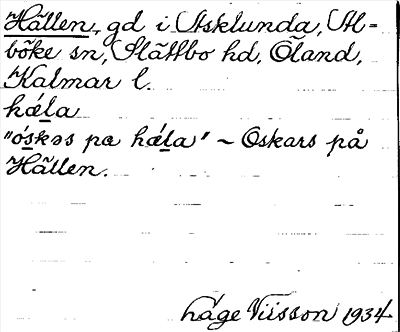 Hällen, gd i Äsklunda, Äl-
böke sn, Slättbo hd, Öland,
Kalmar l.
hǽla
"óskəs pa hǽla" ~ Oskars på
Hällen.
Åge Nilsson 1934